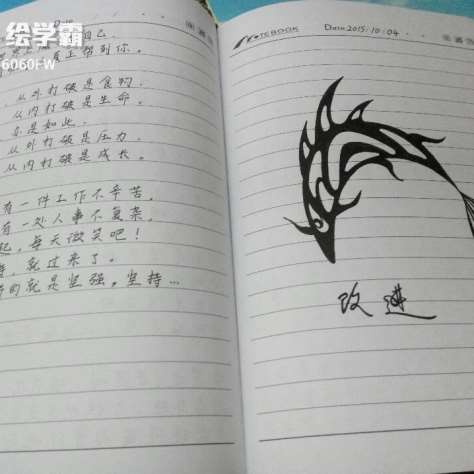 绘学霸
6060FW
自己.
正帮到你。
从外打破是食物.
从内打破是生命.
亦是如此.
从外打破是压力.
从内打破是成长。
有一件工作不辛苦.
有一处人事不复杂.
起,每天微笑吧!
就过来了。
的就是坚强,坚持…
NOTEBOOK
Date 2015.10.04
改进